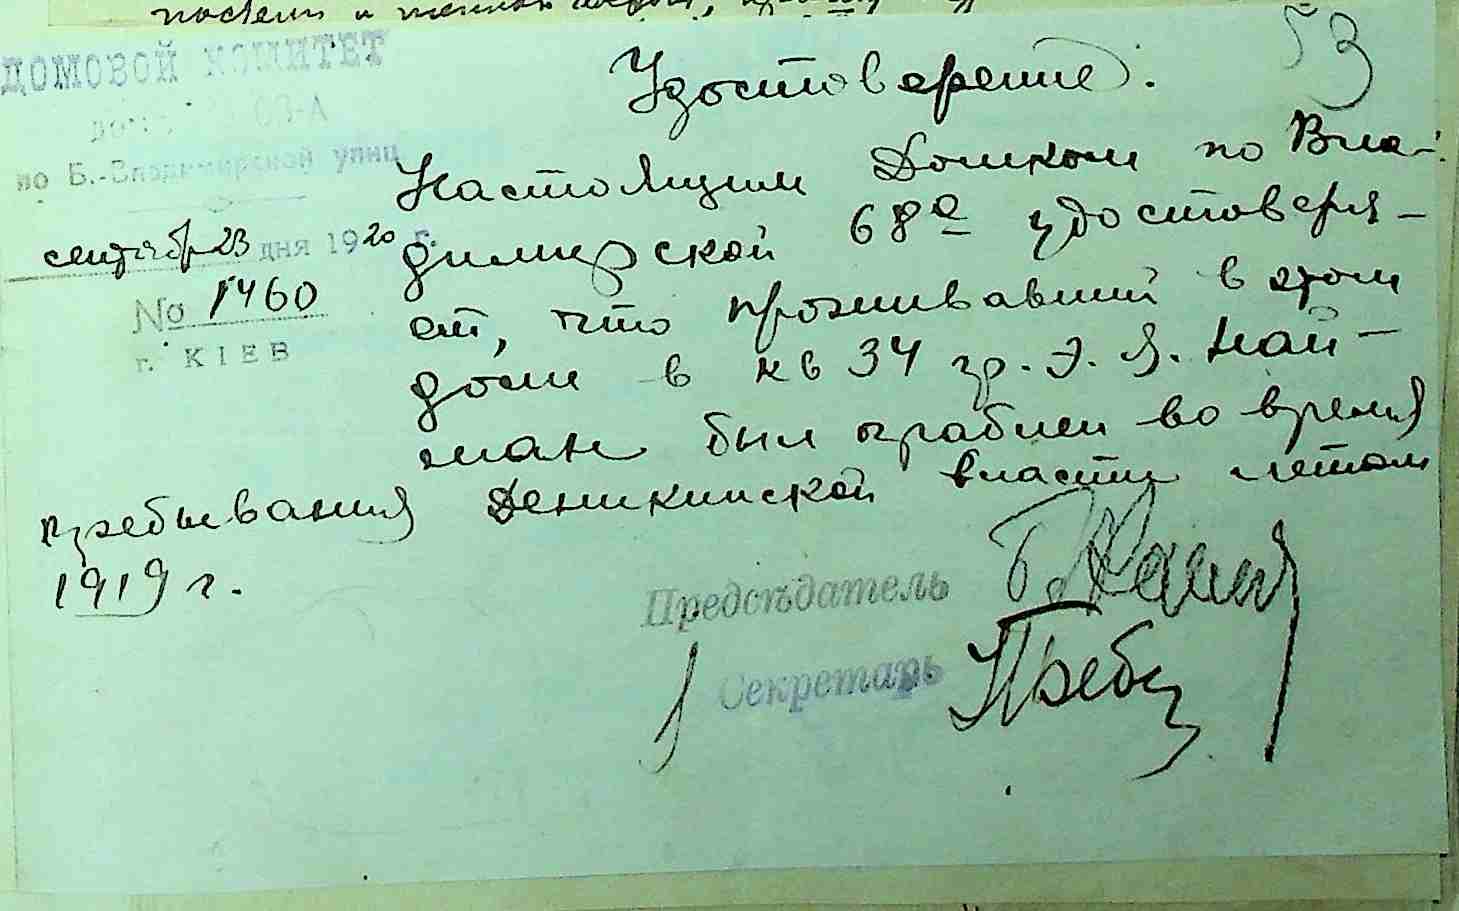 53
ДОМОВОЙ КОМИТЕТ
по Б.-Владимирской улиц
сентябр 23 дня 1920 г.
No 1460
г. КІЕВ
Удостоверение.
Настоящим Домком по Вла-
димирской 68а удостоверя-
ет, что проживавший в этом
доме в кв 34 гр. Э. Я. Най-
ман был ограблен во время
пребывания Деникинской власти летом
1919 г.
Предсѣдатель
Секретарь